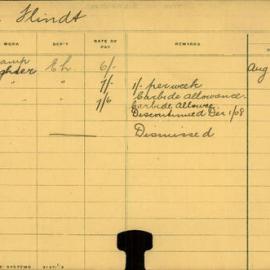 Flindt
WORK DEP'T RATE OF PAY REMARKS
amp
ghter Eh. 6/- Aug
" " 7/- 1/- per week
Carbide allowance
" 7/6 Carbide Allowce
Discontinued Dec 1/08
Dismissed
SYSTEMS